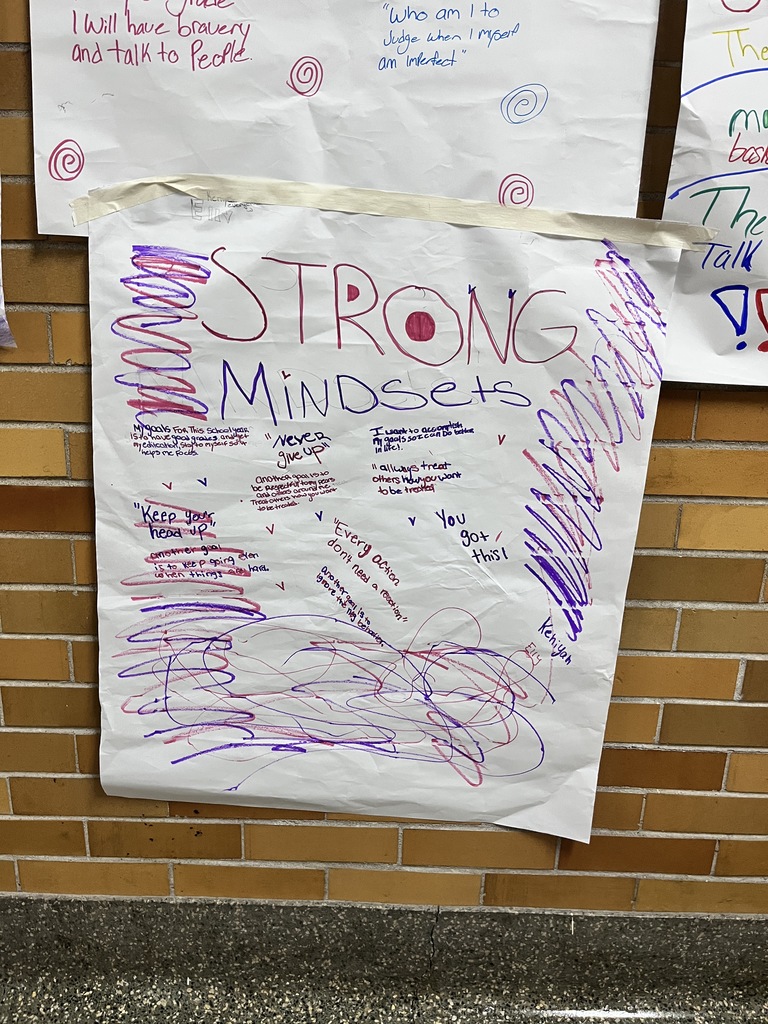 I will have bravery
and talk to People.
"Who am I to
Judge when I myself
am imperfect"
The
The
Talk
Elly
STRONG
MiNDsets
My goals FOR THis School year
is to have good grades, and get
my education, Stay to myself so it
helps me focus.
"Never
give up"
another goal is to
be Respectful to my pears
and others around me
Treat others how you want
to be treated.
I want to accomplish
my goals so i can Do better
in life!.
"allways treat
others how you want
to be treated
"Keep your
head up"
another goal
is to keep going even
when things get hard.
"Every action
don't need a reaction"
another goal is to
ignore the
You
got
this!
Kehiyah
Elly